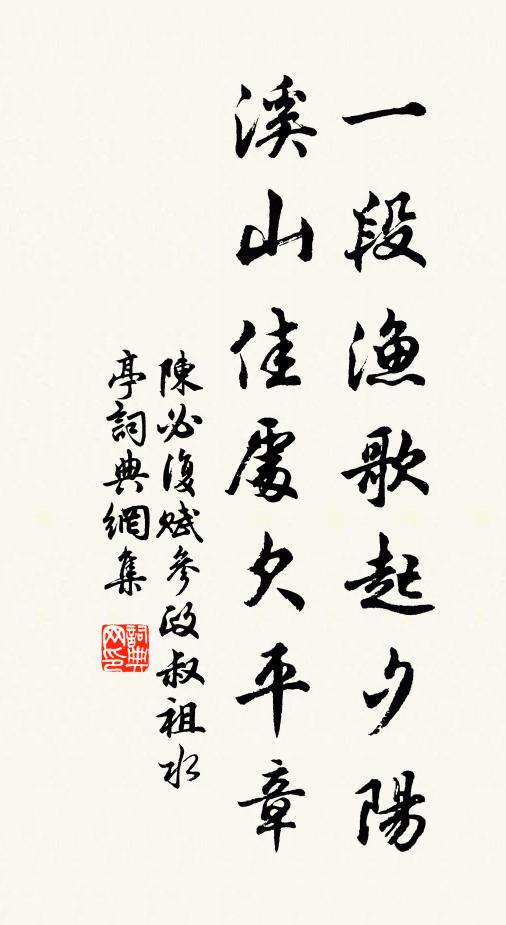 一段漁歌起夕陽
溪山佳處欠平章
陳必復賦參政叔祖水
亭詞典網集
詞典
网印